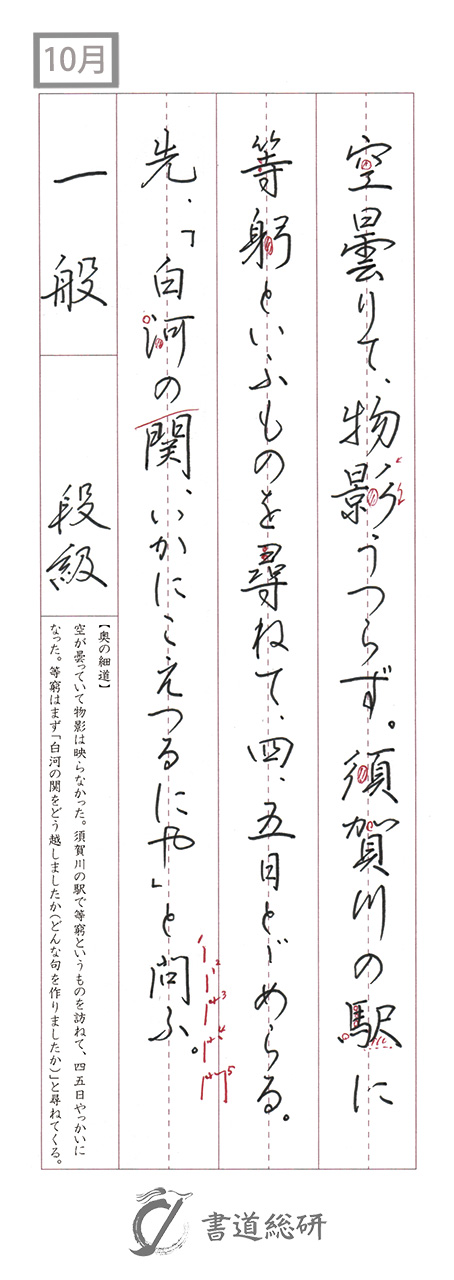 10月
空曇りて、物影うつらず。須賀川の駅に
等躬といふものを尋ねて、四、五日とゞめらる。
先、「白河の関、いかにこえつるにや」と問ふ。
一般
段級
【奥の細道】
空が曇っていて物影は映らなかった。須賀川の駅で等窮というものを訪ねて、四五日やっかいに
なった。等窮はまず「白河の関をどう越しましたか(どんな句を作りましたか)」と尋ねてくる。
1
2
3
4
5
書道総研